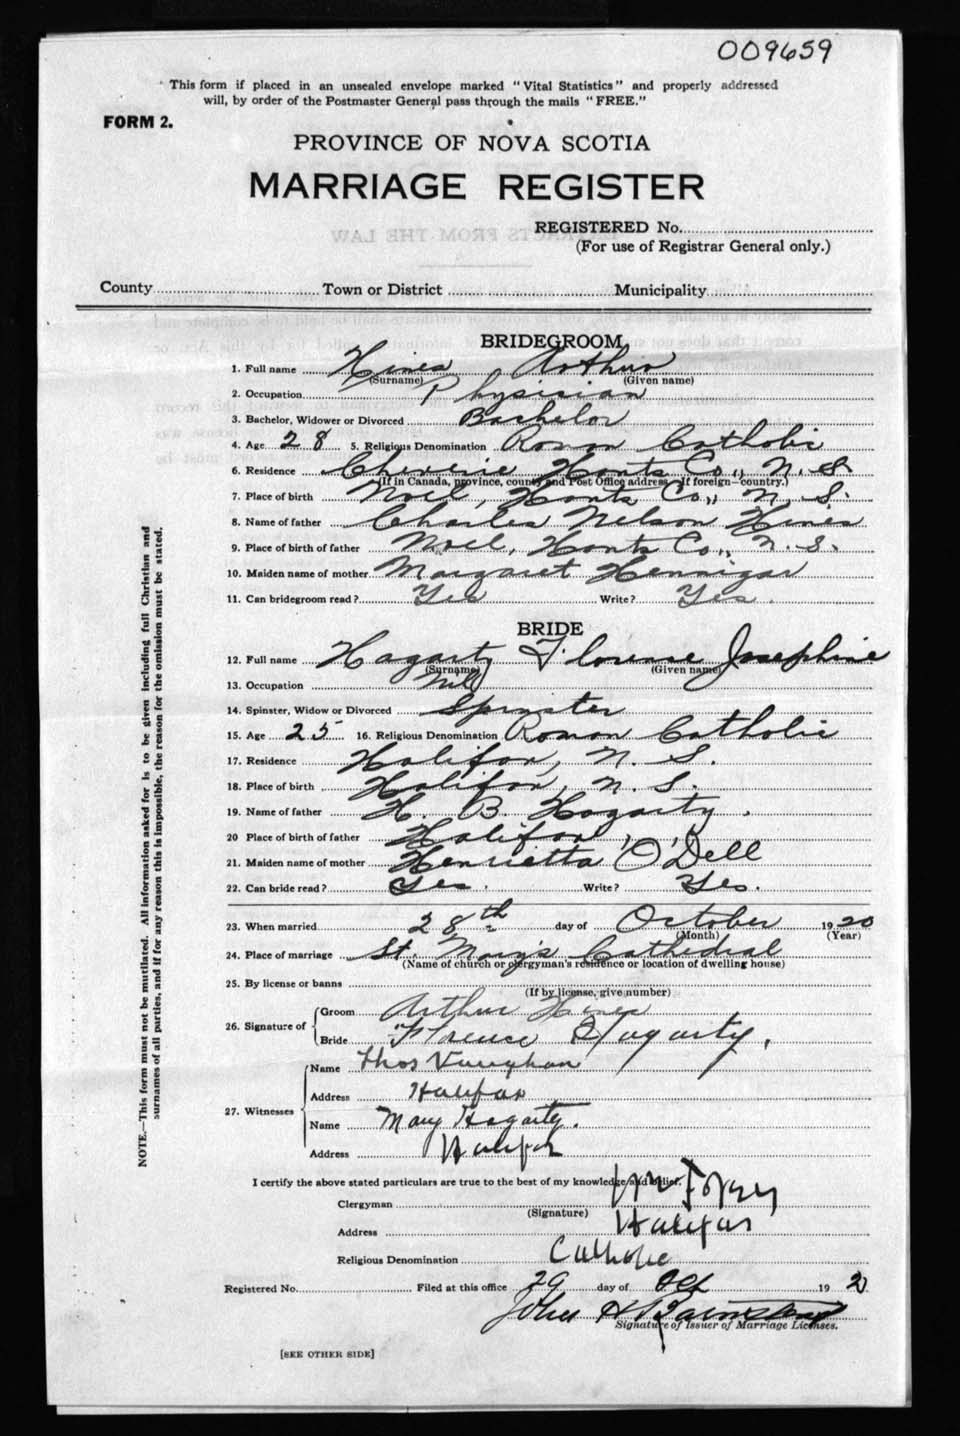 009659
This form if placed in an unsealed envelope marked "Vital Statistics" and properly addressed
will, by order of the Postmaster General pass through the mails "FREE."
FORM 2.
PROVINCE OF NOVA SCOTIA
MARRIAGE REGISTER
REGISTERED No.
(For use of Registrar General only.)
County Town or District Municipality
BRIDEGROOM
1. Full name Hines Arthur
(Surname) (Given name)
2. Occupation Physician
3. Bachelor, Widower or Divorced Bachelor
4. Age 28 5. Religious Denomination Roman Catholic
6. Residence Cheverie Hants Co., N.S.
(If in Canada, province, county and Post Office address. If foreign—country.)
7. Place of birth Noel, Hants Co., N.S.
8. Name of father Charles Nelson Hines
9. Place of birth of father Noel, Hants Co., N.S.
10. Maiden name of mother Margaret Hennigar
11. Can bridegroom read? Yes Write? Yes.
BRIDE
12. Full name Hagarty Florence Josephine
(Surname) (Given name)
13. Occupation Nil
14. Spinster, Widow or Divorced Spinster
15. Age 25 16. Religious Denomination Roman Catholic
17. Residence Halifax, N.S.
18. Place of birth Halifax, N.S.
19. Name of father H. B. Hagarty.
20 Place of birth of father Halifax, "
21. Maiden name of mother Henrietta O'Dell
22. Can bride read? Yes. Write? Yes.
23. When married 28th day of October 1920
(Month) (Year)
24. Place of marriage St. Mary's Cathedral
(Name of church or clergyman's residence or location of dwelling house)
25. By license or banns
(If by license, give number)
26. Signature of Groom Arthur Hines
Bride Florence Hagarty.
27. Witnesses Name Thos Vaughan
Address Halifax
Name Mary Hagarty.
Address Halifax
I certify the above stated particulars are true to the best of my knowledge and belief.
Clergyman Wm Foley
(Signature)
Address Halifax
Religious Denomination Catholic
Registered No. Filed at this office 29 day of Oct 1920
John H
Signature of Issuer of Marriage Licenses.
[SEE OTHER SIDE]
NOTE.—This form must not be mutilated. All information asked for is to be given including full Christian and
surnames of all parties, and if for any reason this is impossible, the reason for the omission must be stated.